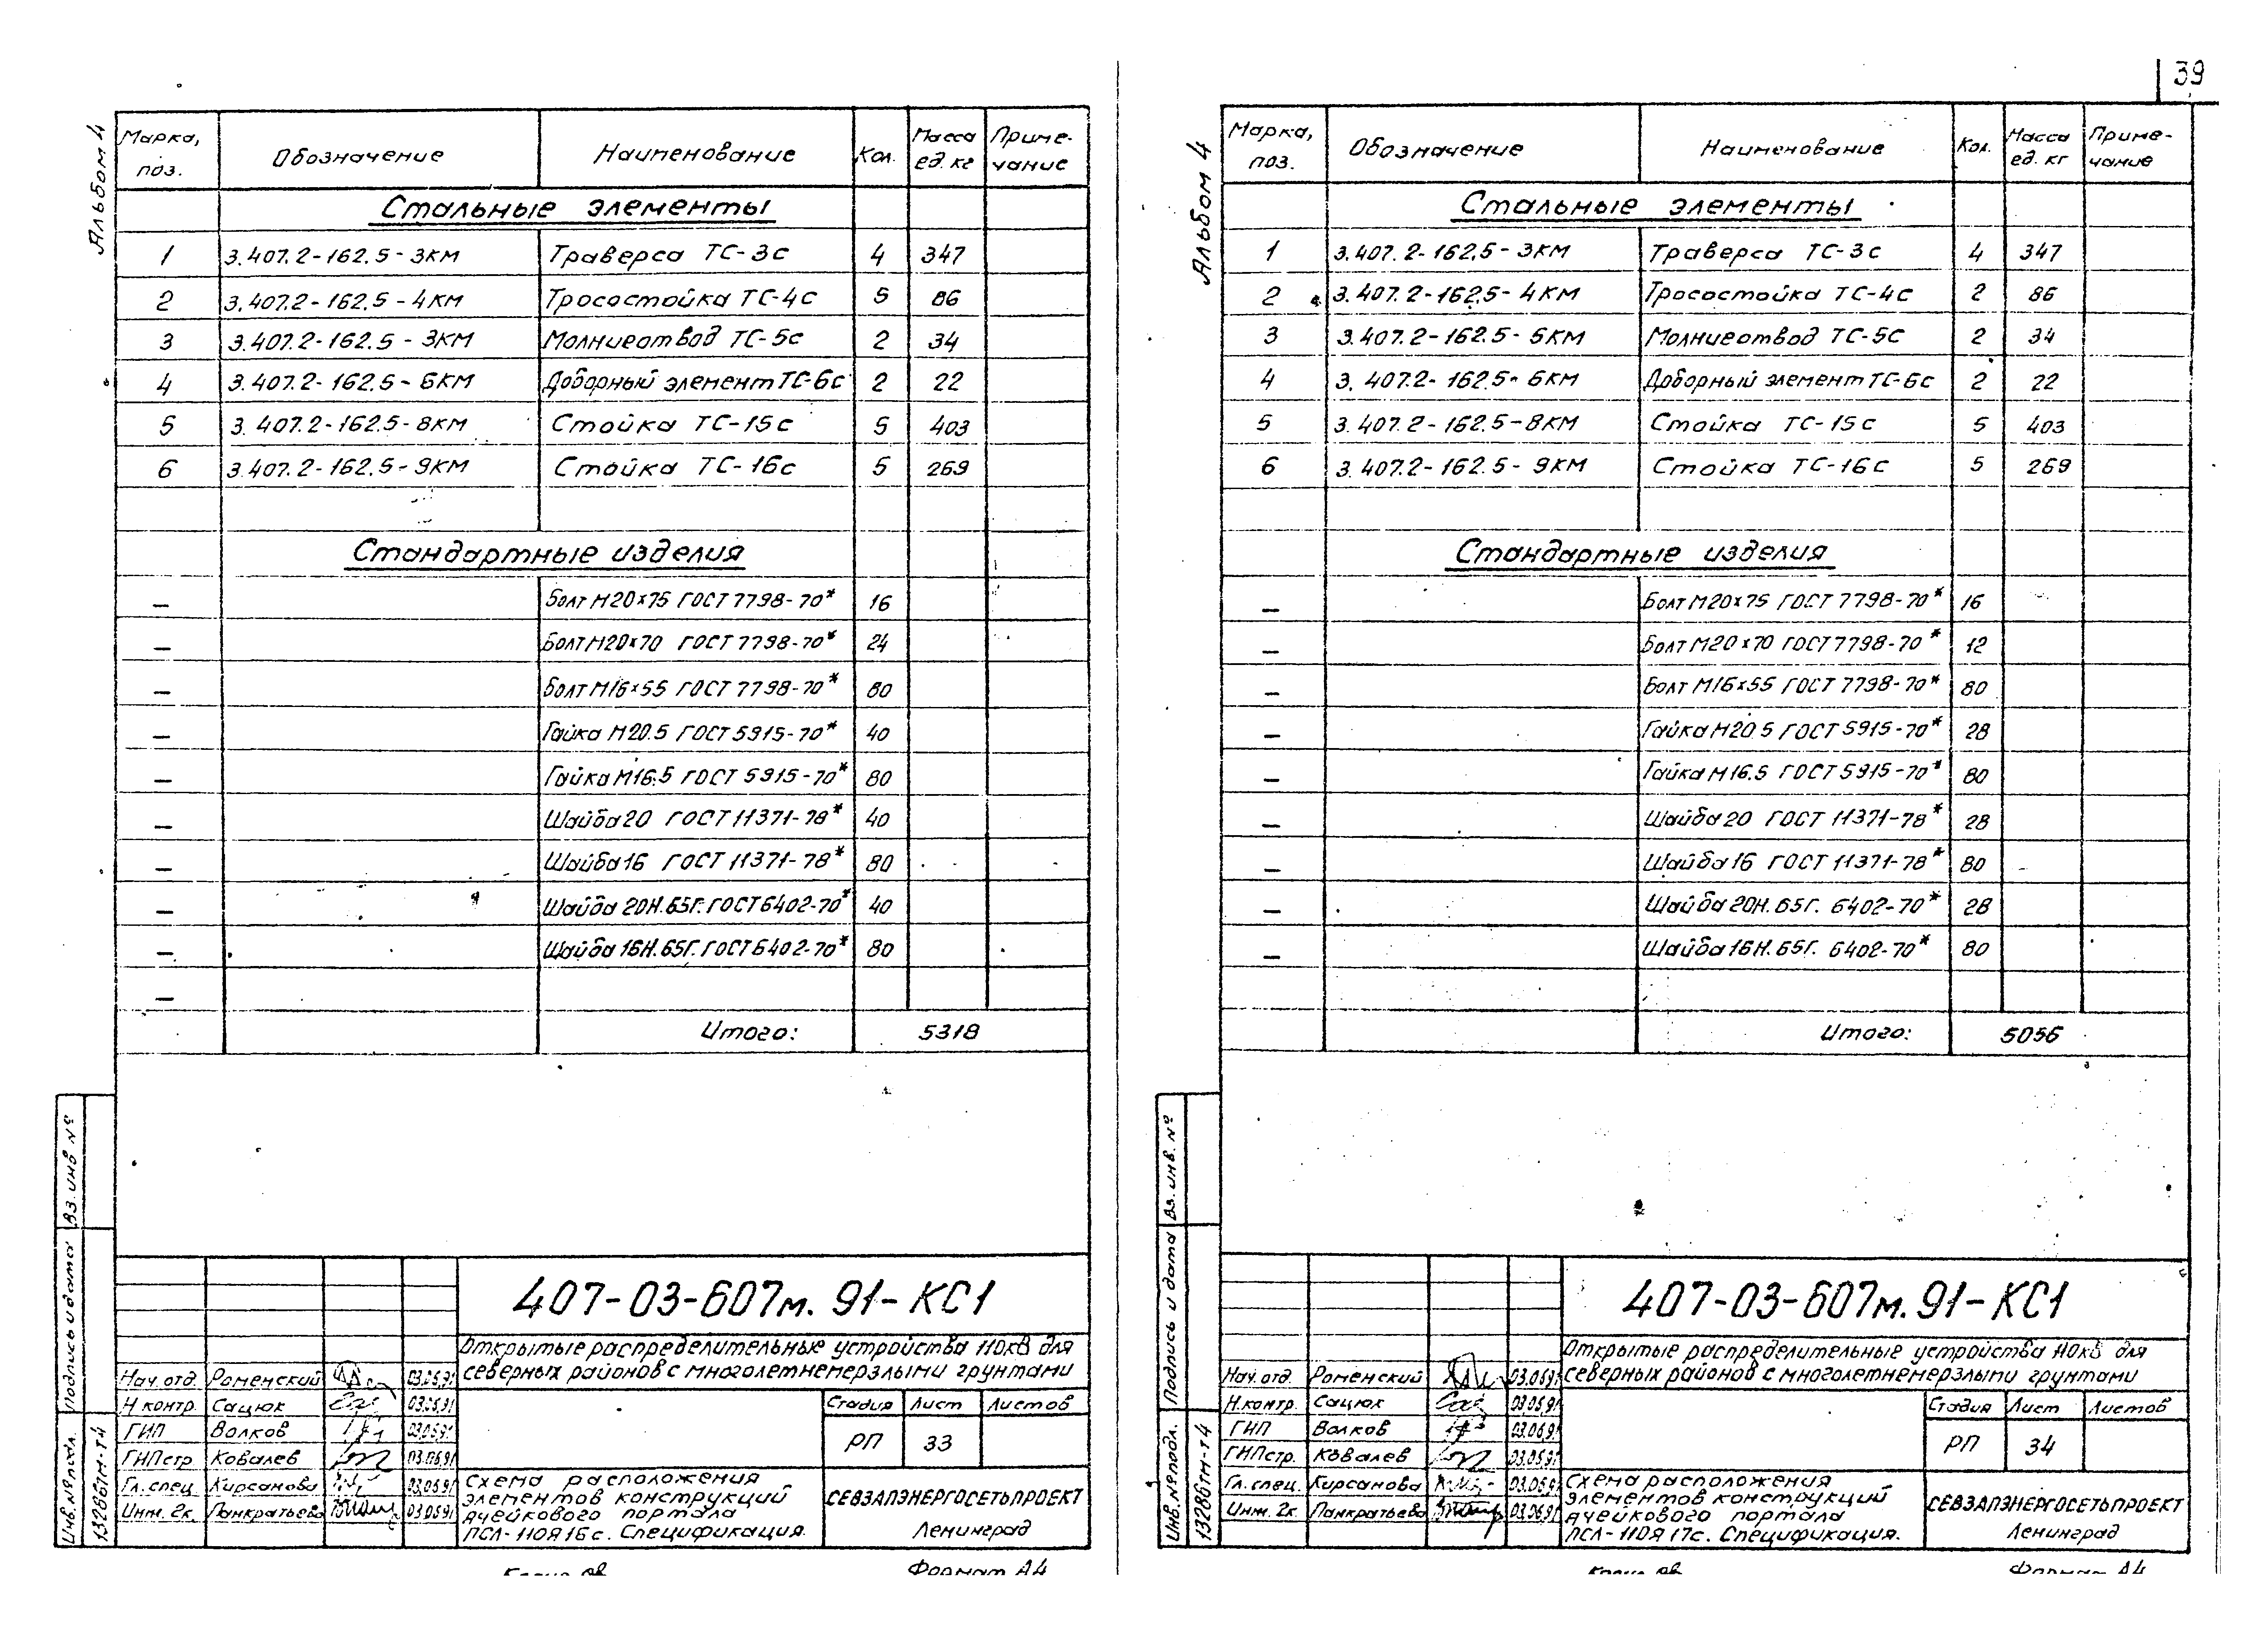 39
Альбом 4
Марка, поз. Обозначение Наименование Кол. Масса ед. кг Приме-чание
Стальные элементы
1 3.407.2-162.5-3КМ Траверса ТС-3с 4 347
2 3.407.2-162.5-4КМ Тросостойка ТС-4с 5 86
3 3.407.2-162.5-3КМ Молниеотвод ТС-5с 2 34
4 3.407.2-162.5-6КМ Доборный элемент ТС-6с 2 22
5 3.407.2-162.5-8КМ Стойка ТС-15с 5 403
6 3.407.2-162.5-9КМ Стойка ТС-16с 5 269
Стандартные изделия
— Болт М20х75 ГОСТ 7798-70* 16
— Болт М20х70 ГОСТ 7798-70* 24
— Болт М16х55 ГОСТ 7798-70* 80
— Гайка М20.5 ГОСТ 5915-70* 40
— Гайка М16.5 ГОСТ 5915-70* 80
— Шайба 20 ГОСТ 11371-78* 40
— Шайба 16 ГОСТ 11371-78* 80
— Шайба 20Н.65Г. ГОСТ 6402-70* 40
— Шайба 16Н.65Г. ГОСТ 6402-70* 80
—
Итого: 5318
Вз. инв №
Подпись и дата
Инв. № подл.
13286тм-т4
407-03-607м.91-КС1
Открытые распределительные устройства 110кВ для
северных районов с многолетнемерзлыми грунтами
Нач. отд. Роменский 03.06.91
Н контр. Сацюк 03.06.91
ГИП Волков 03.06.91
ГИПстр Ковалев 03.06.91
Гл. спец. Кирсанова 03.06.91
Инж. 2к. Панкратьева 03.06.91
Стадия Лист Листов
РП 33
Схема расположения
элементов конструкций
ячейкового портала
ПСЛ-110Я16с. Спецификация.
СЕВЗАПЭНЕРГОСЕТЬПРОЕКТ
Ленинград
Формат А4
Альбом 4
Марка, поз. Обозначение Наименование Кол. Масса ед. кг Приме-чание
Стальные элементы
1 3.407.2-162.5-3КМ Траверса ТС-3с 4 347
2 3.407.2-162.5-4КМ Тросостойка ТС-4с 2 86
3 3.407.2-162.5-5КМ Молниеотвод ТС-5с 2 34
4 3.407.2-162.5-6КМ Доборный элемент ТС-6с 2 22
5 3.407.2-162.5-8КМ Стойка ТС-15с 5 403
6 3.407.2-162.5-9КМ Стойка ТС-16с 5 269
Стандартные изделия
— Болт М20х75 ГОСТ 7798-70* 16
— Болт М20х70 ГОСТ 7798-70* 12
— Болт М16х55 ГОСТ 7798-70* 80
— Гайка М20.5 ГОСТ 5915-70* 28
— Гайка М16.5 ГОСТ 5915-70* 80
— Шайба 20 ГОСТ 11371-78* 28
— Шайба 16 ГОСТ 11371-78* 80
— Шайба 20Н.65Г. 6402-70* 28
— Шайба 16Н.65Г. 6402-70* 80
Итого: 5056
Вз. инв. №
Подпись и дата
Инв. № подл.
13286тм-т4
407-03-607м.91-КС1
Открытые распределительные устройства 110кВ для
северных районов с многолетнемерзлыми грунтами
Нач. отд. Роменский 03.06.91
Н.контр. Сацюк 03.06.91
ГИП Волков 03.06.91
ГИПстр. Ковалев 03.06.91
Гл. спец. Кирсанова 03.06.91
Инж. 2к. Панкратьева 03.06.91
Стадия Лист Листов
РП 34
Схема расположения
элементов конструкций
ячейкового портала
ПСЛ-110Я17с. Спецификация.
СЕВЗАПЭНЕРГОСЕТЬПРОЕКТ
Ленинград
Формат А4